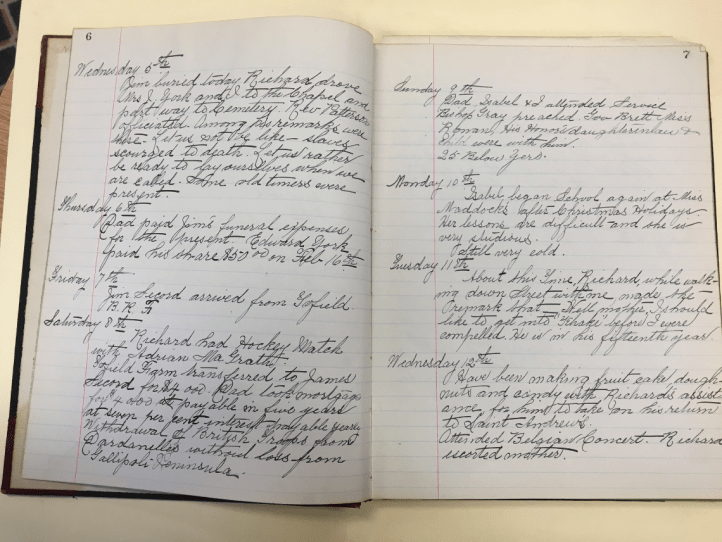 6
Wednesday 5th
Jim buried today. Richard drove
Mrs J York and I to the Chapel and
part way to Cemetery. Rev Patterson
officiated. Among his remarks were
these - Let us not be like slaves
scourged to death. Let us rather
be ready to lay ourselves when we
are called. Some old timers were
present.
Thursday 6th
Dad paid Jim's funeral expenses
for the present. Edward York
paid his share $50 00 on Feb 16th
Friday 7th
Jim Secord arrived from Tofield
B.R.F
Saturday 8th
Richard had Hockey Match
with Adrian McGrath.
Tofield Farm transferred to James
Secord for $4 000. Dad took mortgage
for 4 000 payable in five years
at seven per cent interest payable yearly
Withdrawal of British Troops from
Dardanelles without loss from
Gallipoli Peninsula.
7
Sunday 9th
Dad Isabel & I attended Service
Bishop Gray preached. Gov Brett Miss
Roman, His Honor's daughterinlaw &
child were with him.
25 Below Zero.
Monday 10th
Isabel began School again at Miss
Maddocks after Christmas Holidays
Her lessons are difficult and she is
very studious.
Still very cold.
Tuesday 11th
About this time, Richard, while walk-
ing down Street with me made the
remark that - Well mother, I should
like to get into "Khaki" before I were
compelled. He is in his fifteenth year
Wednesday 12th
Have been making fruit cake, dough
nuts and candy with Richard's assist
ance, for him to take on his return
to Saint Andrew's.
Attended Belgian Concert. Richard
escorted mother.